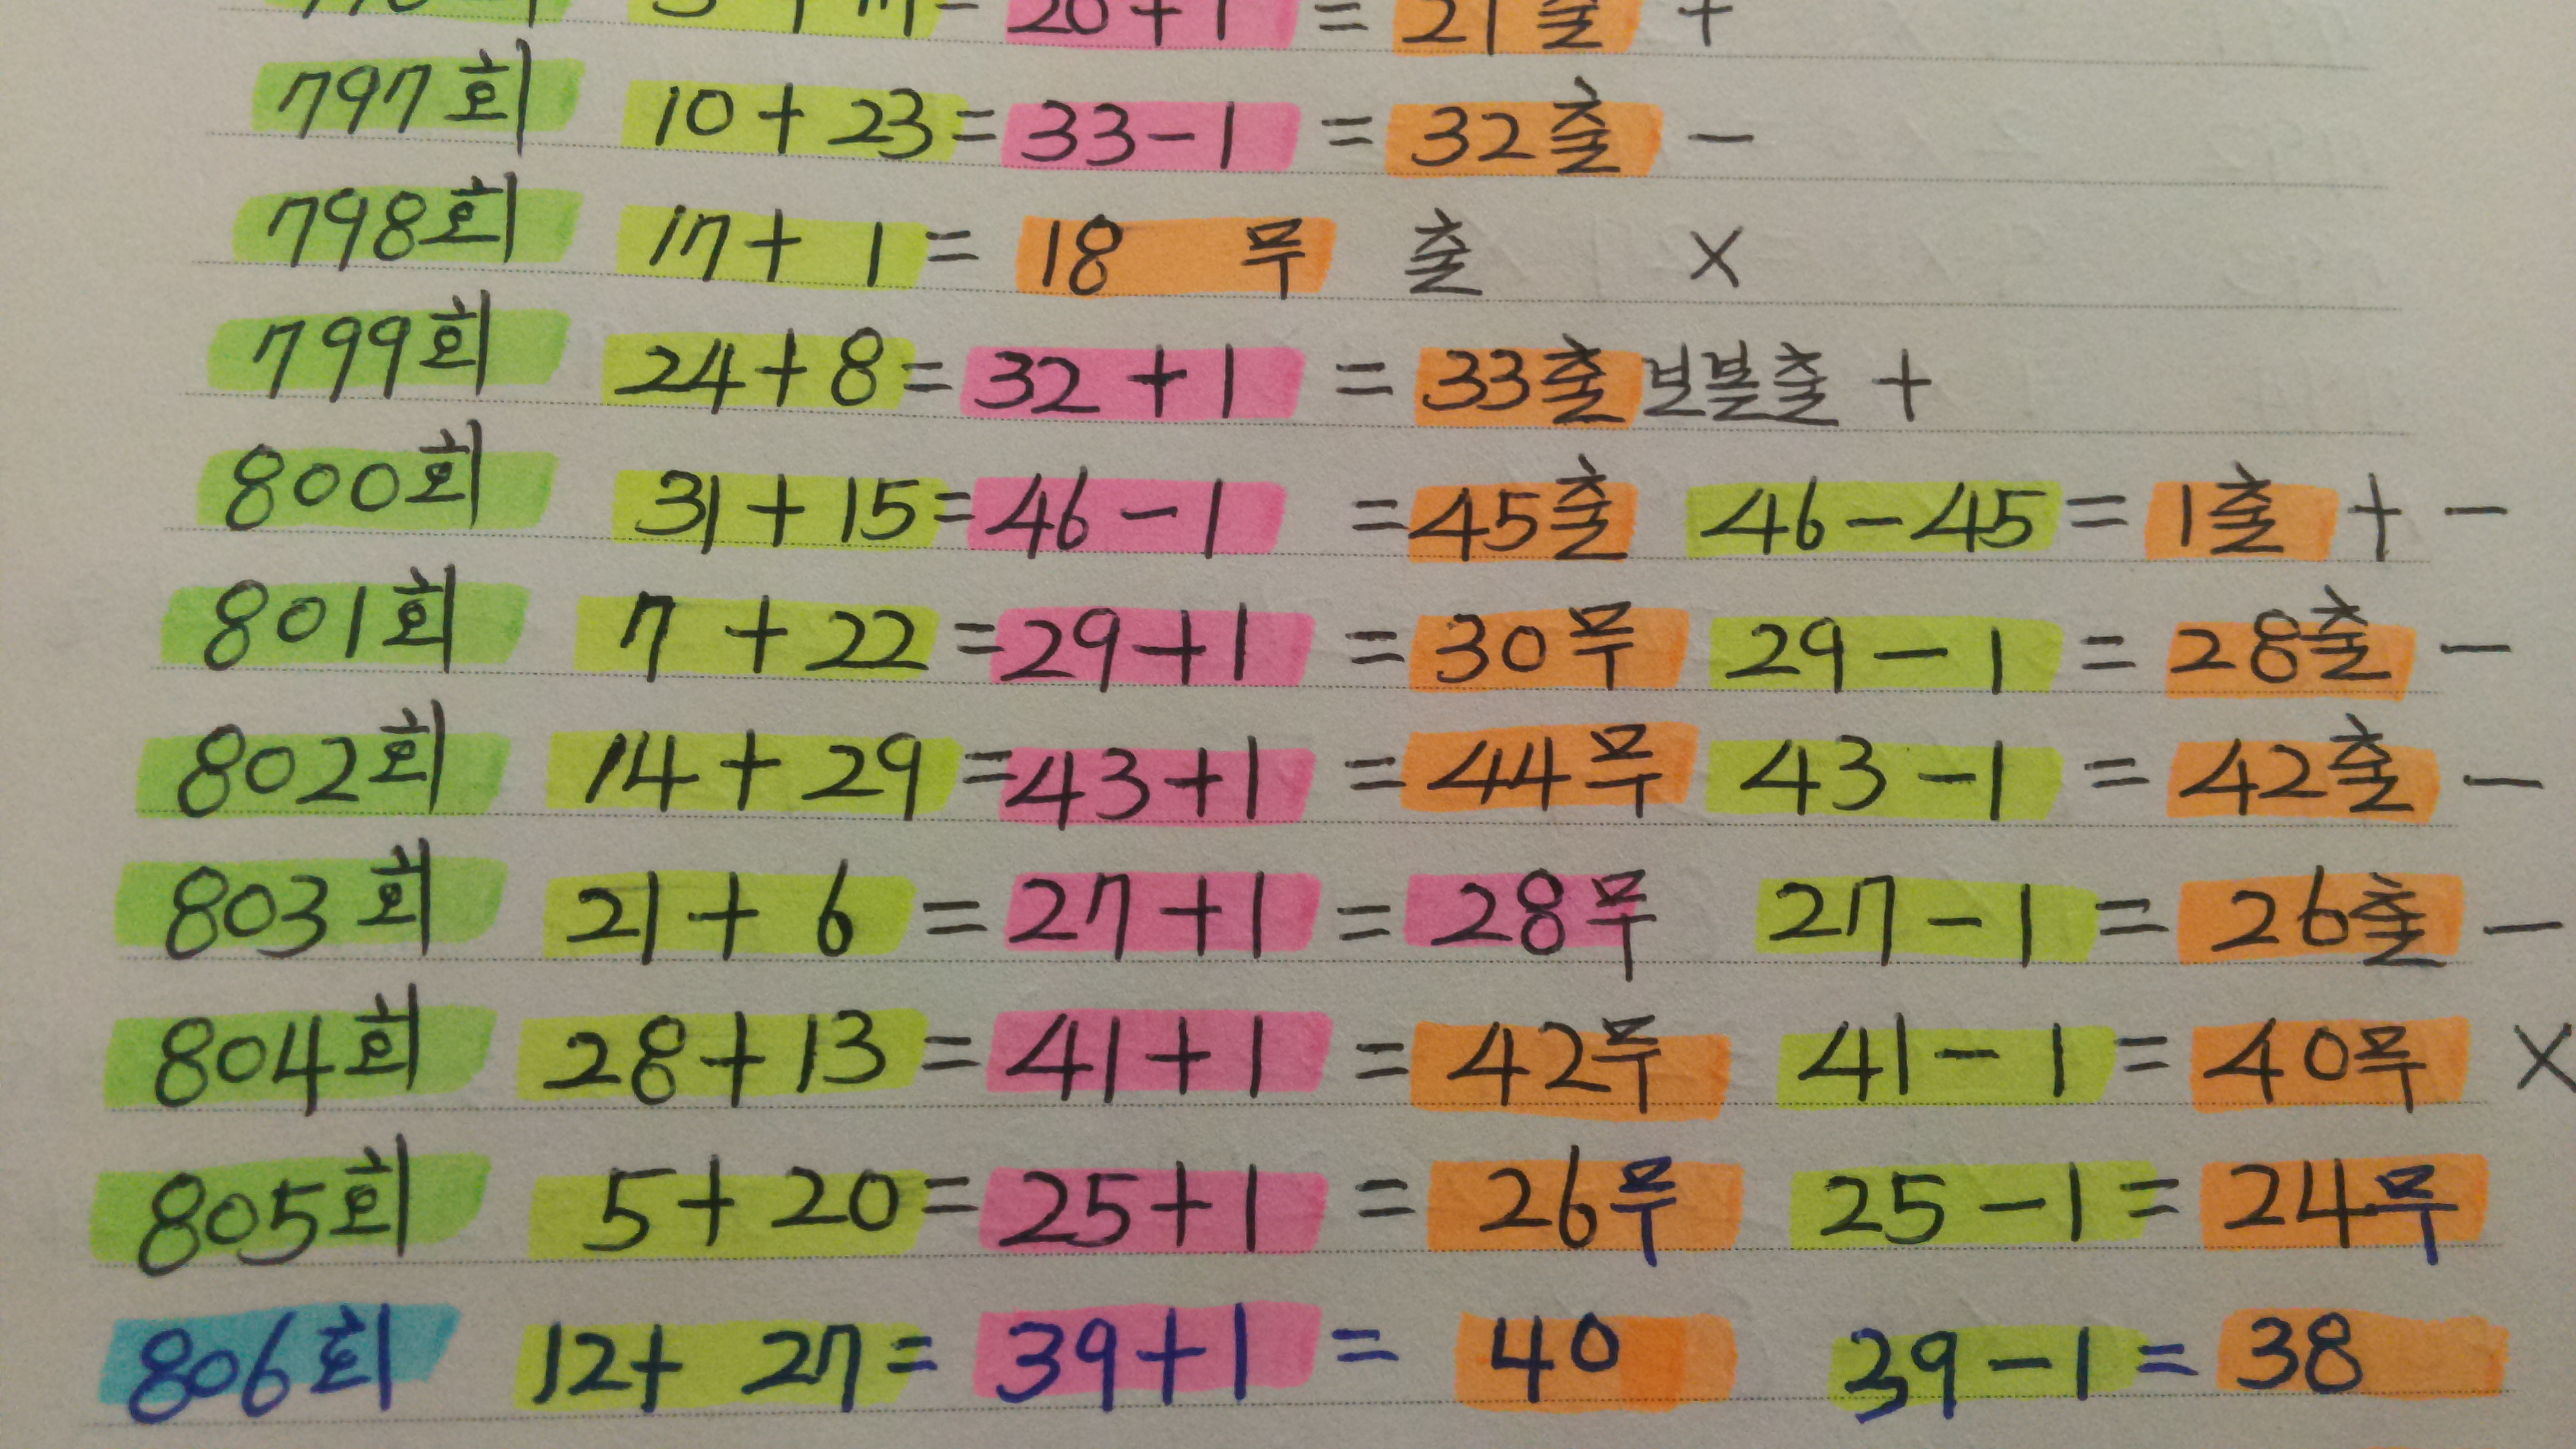 20+1 = 21출 +
797회 10+23=33-1 = 32출 -
798회 17+1= 18 무 출 X
799회 24+8=32+1 = 33출 보볼출 +
800회 31+15=46-1 =45출 46-45= 1출 + -
801회 7+22=29+1 = 30무 29-1 = 28출 -
802회 14+29=43+1 = 44무 43-1 = 42출 -
803회 21+6 = 27+1 = 28무 27-1 = 26출 -
804회 28+13= 41+1 = 42무 41-1= 40무 X
805회 5+20=25+1 = 26무 25-1= 24무
806회 12+ 27= 39+1 = 40 39-1= 38